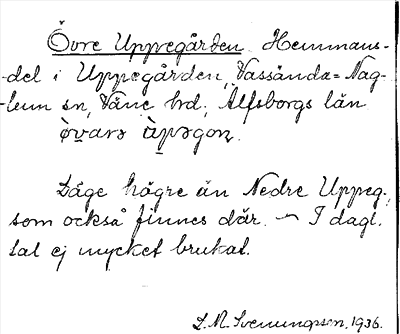 Övre Uppegården. Hemmans-
-del i Uppegården, Vassända-Nag-
-lum sn, Väne hd, Älfsborgs län
òvarə àpəgoɳ.
Läge högre än Nedre Uppeg.,
som också finnes där. – I dagl.
tal ej mycket brukat.
L. M. Svenungsson, 1936.